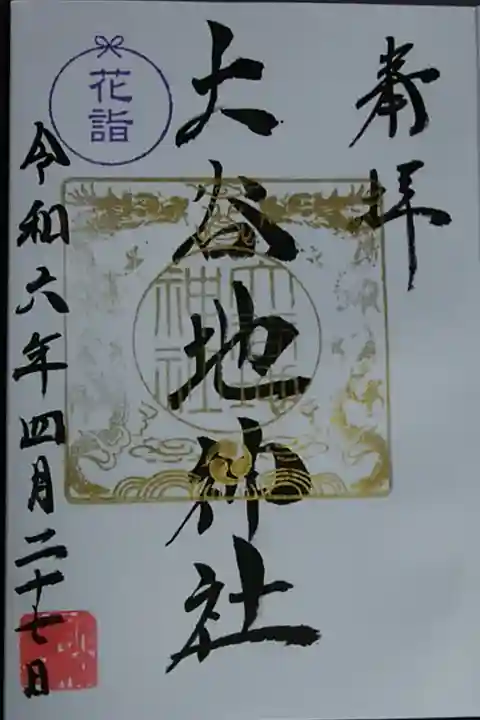 奉拝
大谷地神社
花詣
令和六年四月二十七日